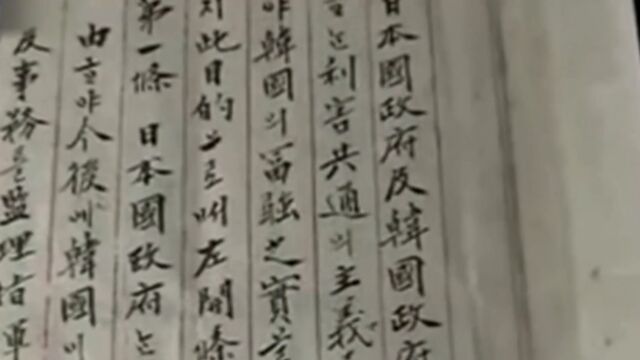 日本國政府及韓國政府
는利害共通의主義
야韓國의富强之實을
지此目的으로써左開條
第一條 日本國政府는
由하야今後에韓國이
及事務를監理指軍